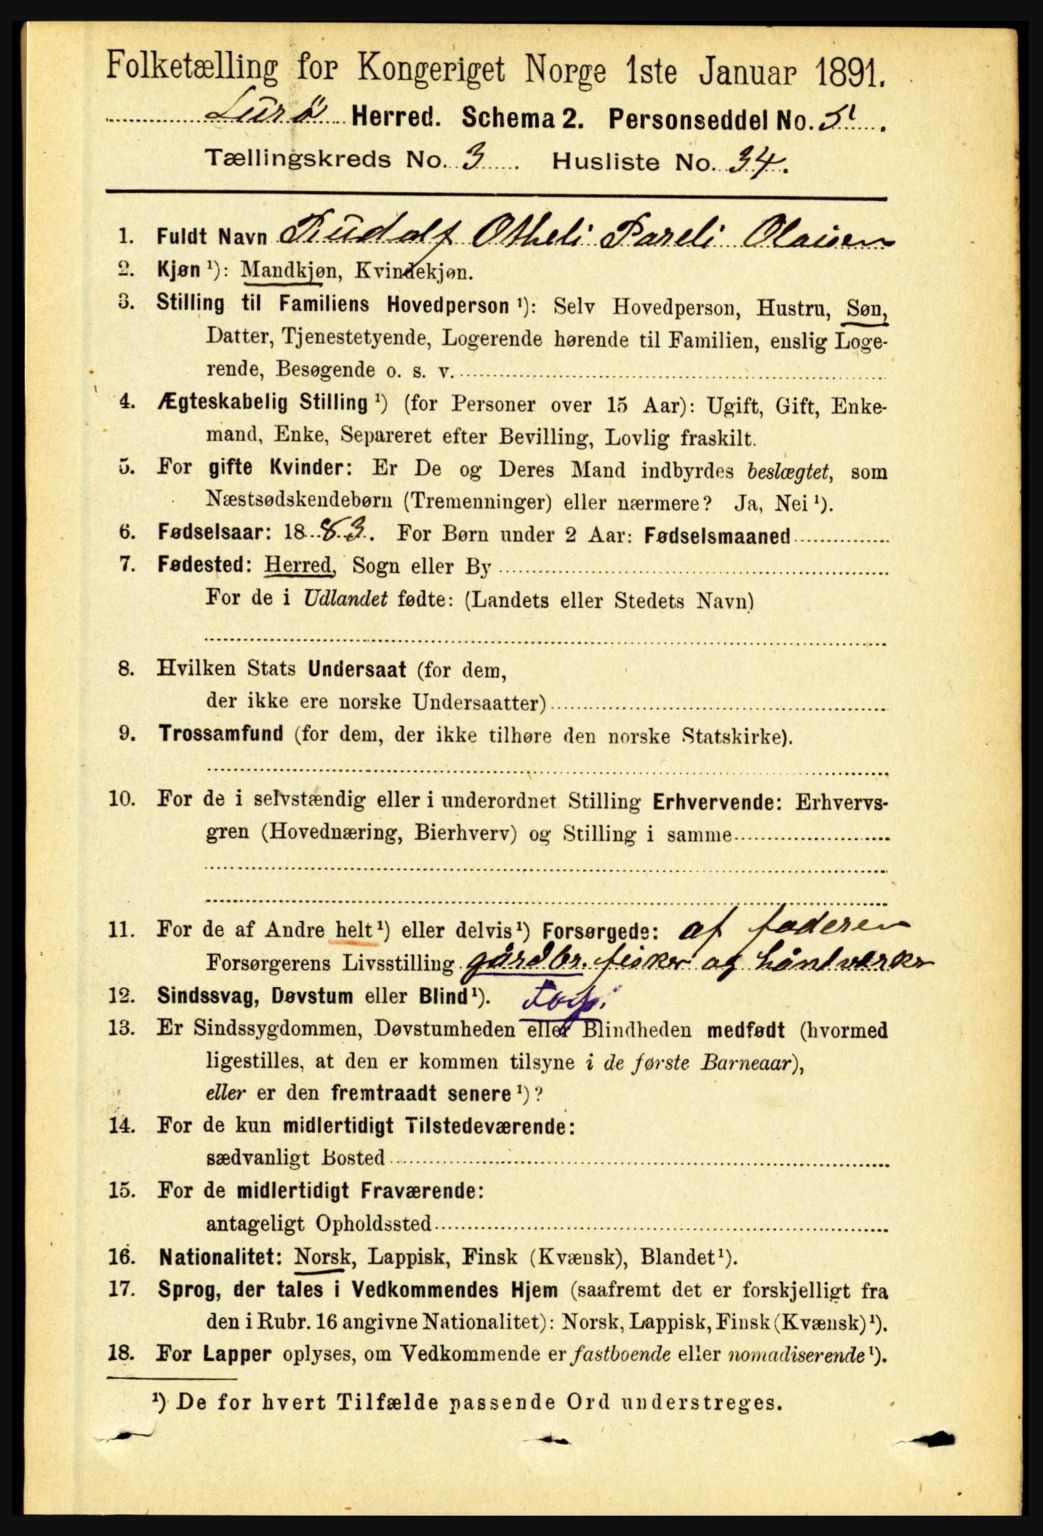 Folketælling for Kongeriget Norge 1ste Januar 1891.
Lurø Herred. Schema 2. Personseddel No. 5.
Tællingskreds No. 3 Husliste No. 34.
1. Fuldt Navn Rudolf Otheli Pareli Olaisen
2. Kjøn ¹): Mandkjøn, Kvindekjøn.
3. Stilling til Familiens Hovedperson ¹): Selv Hovedperson, Hustru, Søn,
Datter, Tjenestetyende, Logerende hørende til Familien, enslig Loge-
rende, Besøgende o. s. v.
4. Ægteskabelig Stilling ¹) (for Personer over 15 Aar): Ugift, Gift, Enke-
mand, Enke, Separeret efter Bevilling, Lovlig fraskilt.
5. For gifte Kvinder: Er De og Deres Mand indbyrdes beslægtet, som
Næstsødskendebørn (Tremenninger) eller nærmere? Ja, Nei ¹).
6. Fødselsaar: 1883. For Børn under 2 Aar: Fødselsmaaned
7. Fødested: Herred, Sogn eller By
For de i Udlandet fødte: (Landets eller Stedets Navn)
8. Hvilken Stats Undersaat (for dem,
der ikke ere norske Undersaatter)
9. Trossamfund (for dem, der ikke tilhøre den norske Statskirke).
10. For de i selvstændig eller i underordnet Stilling Erhvervende: Erhvervs-
gren (Hovednæring, Bierhverv) og Stilling i samme
11. For de af Andre helt ¹) eller delvis ¹) Forsørgede: af faderen
Forsørgerens Livsstilling gårdbr. fisker og håndværker
12. Sindssvag, Døvstum eller Blind ¹).
13. Er Sindssygdommen, Døvstumheden eller Blindheden medfødt (hvormed
ligestilles, at den er kommen tilsyne i de første Barneaar),
eller er den fremtraadt senere ¹)?
14. For de kun midlertidigt Tilstedeværende:
sædvanligt Bosted
15. For de midlertidigt Fraværende:
antageligt Opholdssted
16. Nationalitet: Norsk, Lappisk, Finsk (Kvænsk), Blandet ¹).
17. Sprog, der tales i Vedkommendes Hjem (saafremt det er forskjelligt fra
den i Rubr. 16 angivne Nationalitet): Norsk, Lappisk, Finsk (Kvænsk) ¹).
18. For Lapper oplyses, om Vedkommende er fastboende eller nomadiserende ¹).
¹) De for hvert Tilfælde passende Ord understreges.